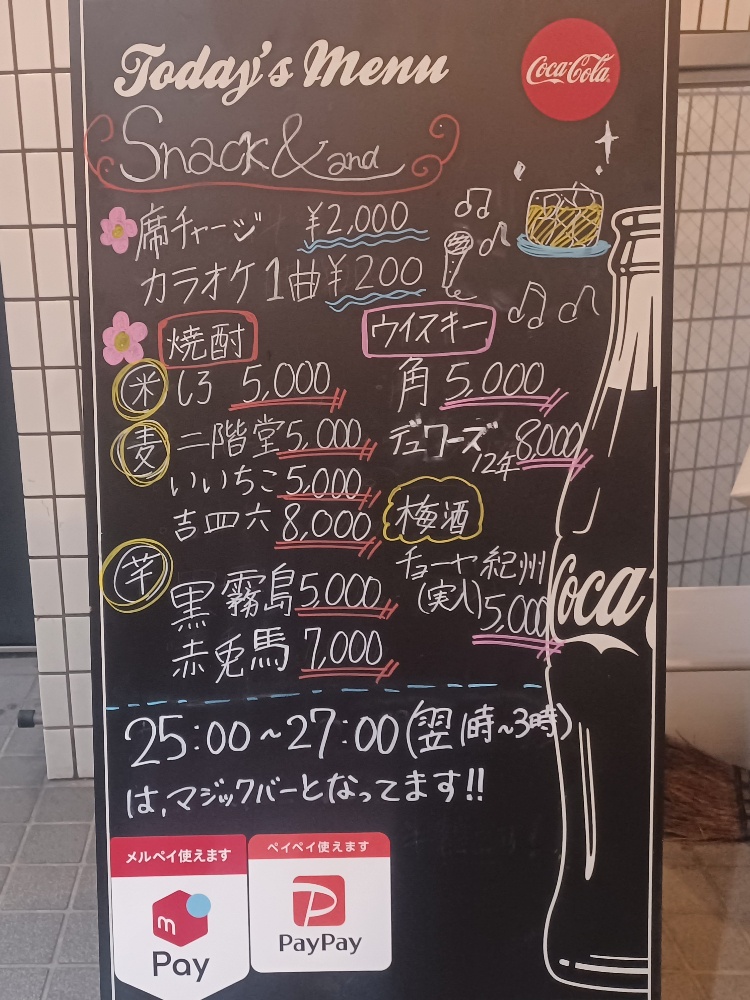 Today's Menu
Coca-Cola
Snack & and
席チャージ ¥2,000
カラオケ 1曲 ¥200
焼酎
米 しろ 5,000
麦 二階堂 5,000
いいちこ 5,000
吉四六 8,000
芋
黒霧島 5,000
赤兎馬 7,000
ウイスキー
角 5,000
デュワーズ 12年 8,000
梅酒
チョーヤ紀州
(実入) 5,000
Coca
25:00~27:00(翌1時~3時)
は、マジックバーとなってます!!
メルペイ使えます
m
Pay
ペイペイ使えます
P
PayPay